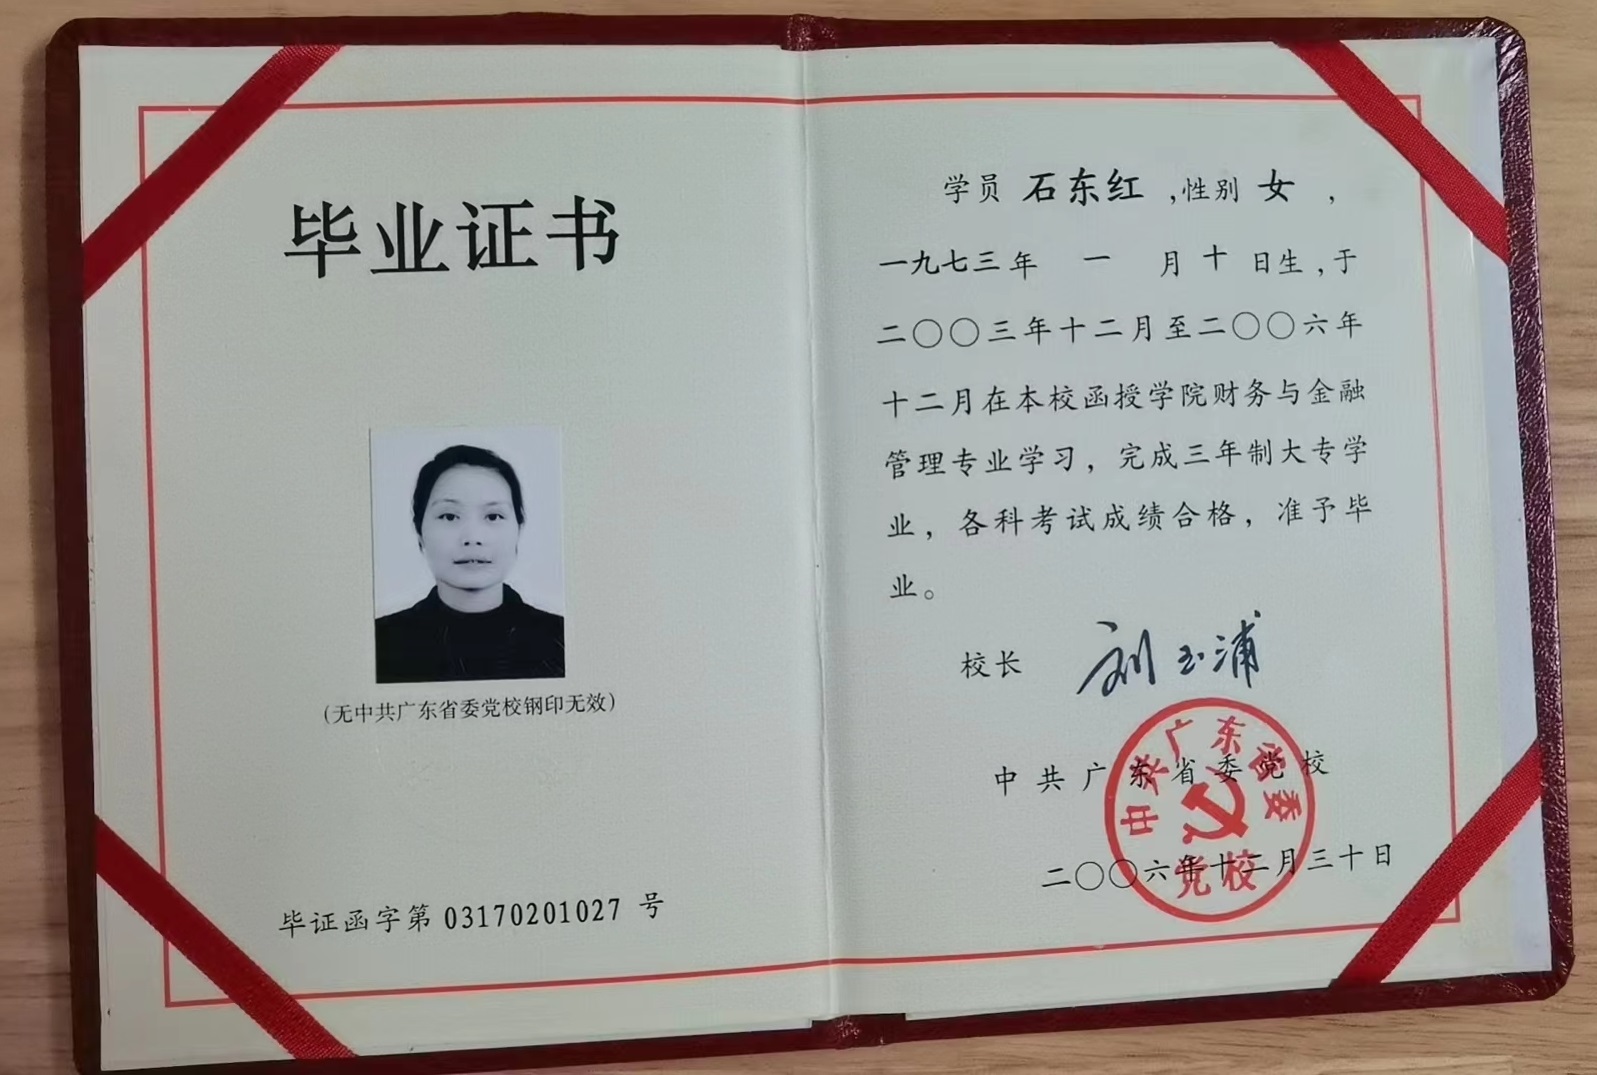 毕业证书
(无中共广东省委党校钢印无效)
毕证函字第 03170201027 号
学员 石东红 ,性别 女 ,
一九七三年 一 月 十 日生,于
二〇〇三年十二月至二〇〇六年
十二月在本校函授学院财务与金融
管理专业学习，完成三年制大专学
业，各科考试成绩合格，准予毕
业。
校长 刘玉浦
中共广东省委党校
中共广东省委
党校
二〇〇六年十二月三十日